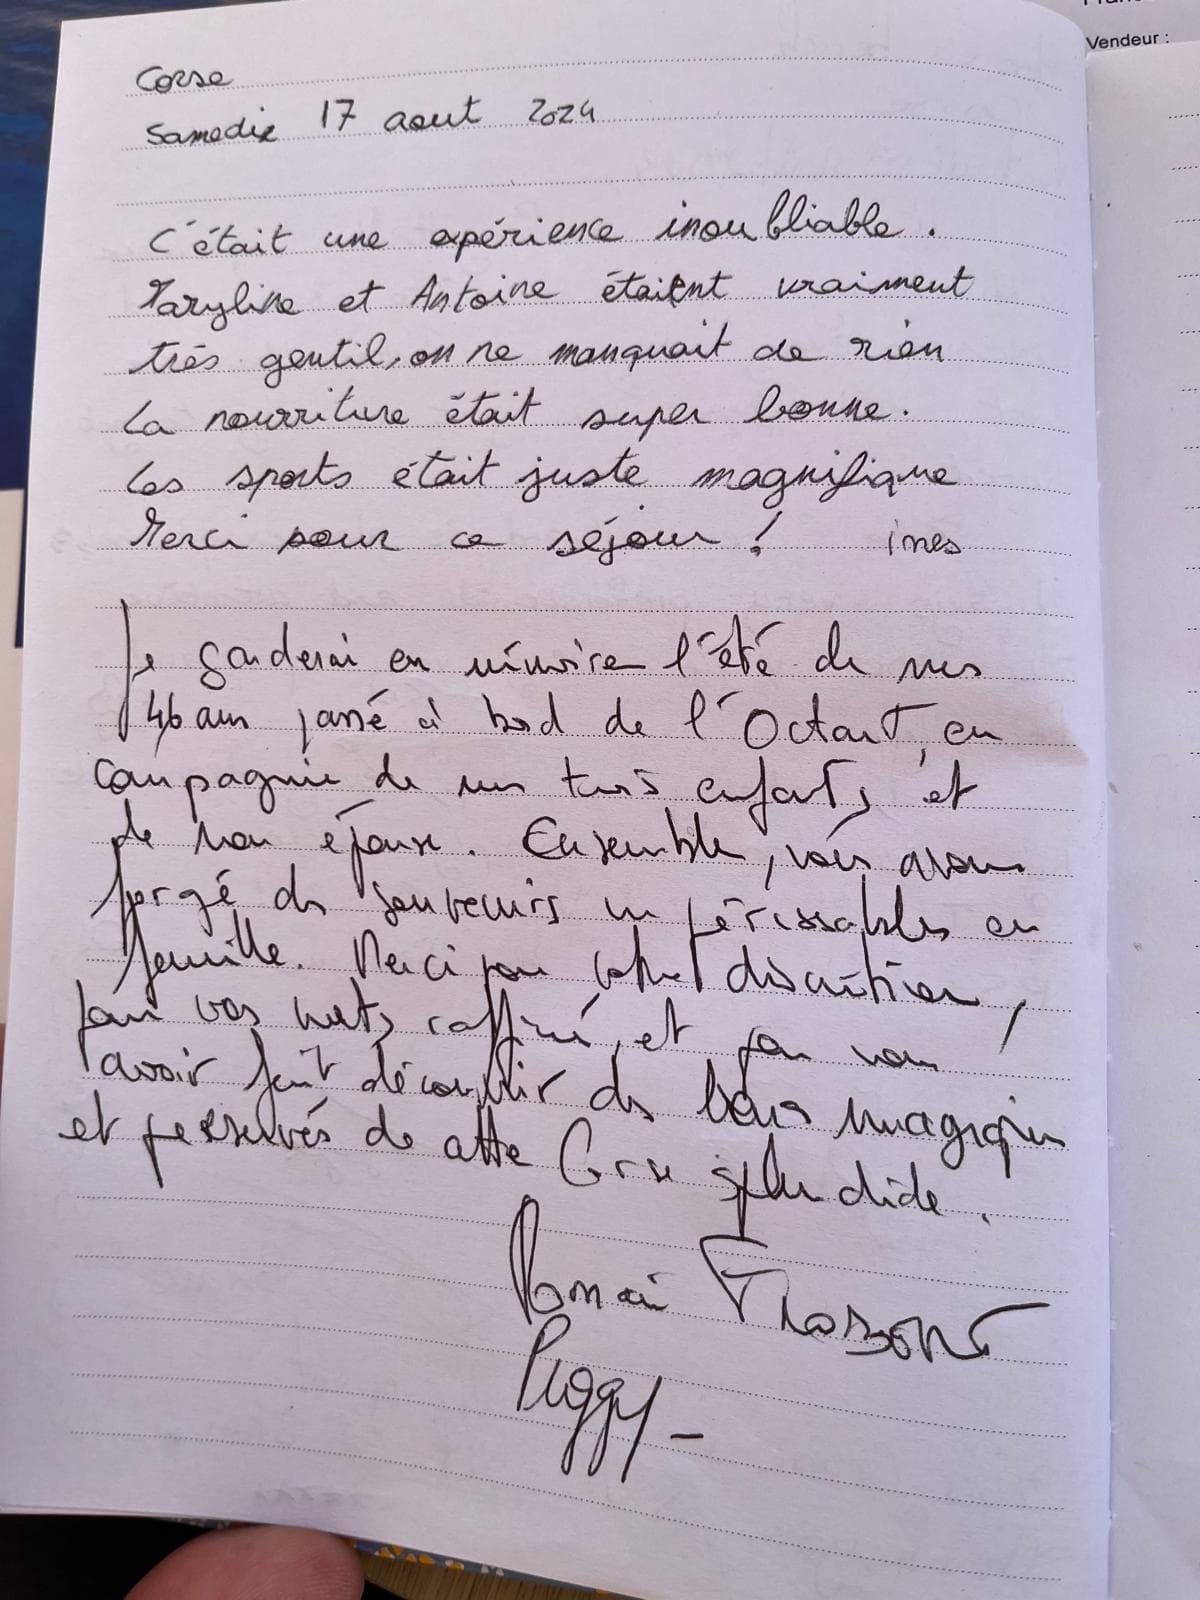 Vendeur :
Corse
Samedi 17 aout 2024
C'était une expérience inoubliable.
Maryline et Antoine étaient vraiment
très gentil, on ne manquait de rien
La nourriture était super bonne.
Les sports était juste magnifique
Merci pour ce séjour ! ines
Je garderai en mémoire l'été de mes
46 ans passé à bord de l'Octant, en
compagnie de mes trois enfants et
de mon épouse. Ensemble, nous avons
forgé des souvenirs impérissables en
famille. Merci pour votre discrétion,
pour vos mets raffiné, et pour nous
avoir fait découvrir des lieux magiques
et préservés de cette Corse splendide.
Romain
Peggy